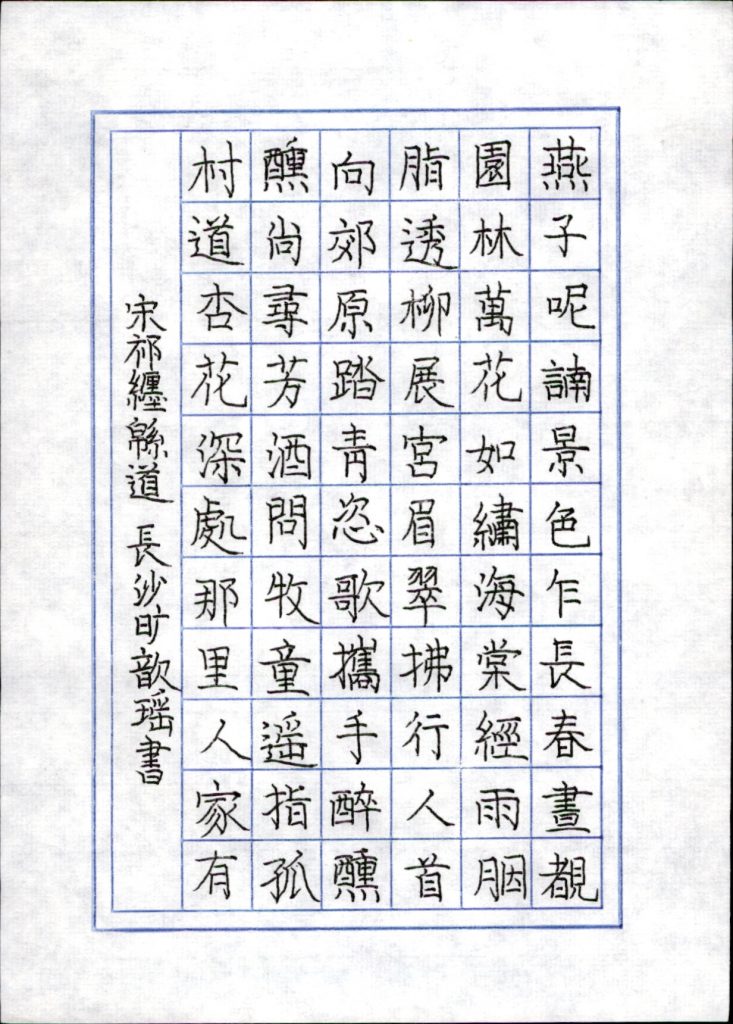 燕子呢諵景色乍長春晝覩
園林萬花如繡海棠經雨胭
脂透柳展宮眉翠拂行人首
向郊原踏青恣歌攜手醉醺
醺尚尋芳酒問牧童遥指孤
村道杏花深處那里人家有
宋祁纏緜道 長沙旷歆瑶書